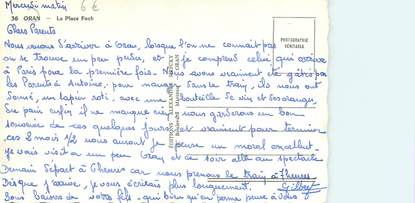 Mercredi matin 6€
36 ORAN — La Place Foch
Chers Parents
PHOTOGRAPHIE
VERITABLE
Nous venons d'arriver à Oran, lorsque l'on ne connait pas
on se trouve un peu perdu, et je comprend celui qui arrive
à Paris pour la première fois. Nous avons vraiment été gâtés par
les Parents à Antoine. pour manger dans le train, ils nous ont
donné, un lapin roti, avec une bouteille de vin et des oranges
En pain enfin il ne manque rien, nous garderons un bon
souvenir de ces quelques jours et vraiment pour terminer
ces 2 mois ½ nous aurons je pense un moral excellent.
je vais visiter un peu Oran et ce soir aller au spectacle
Demain départ à 6 heures car nous prenons le train à 7 heures
Dès que j'arrive, je vous écrirais plus longuement. Gilbert
Bons baisers de votre fils, qui bien qu'en perme pense à vous
EDITIONS
ORAN